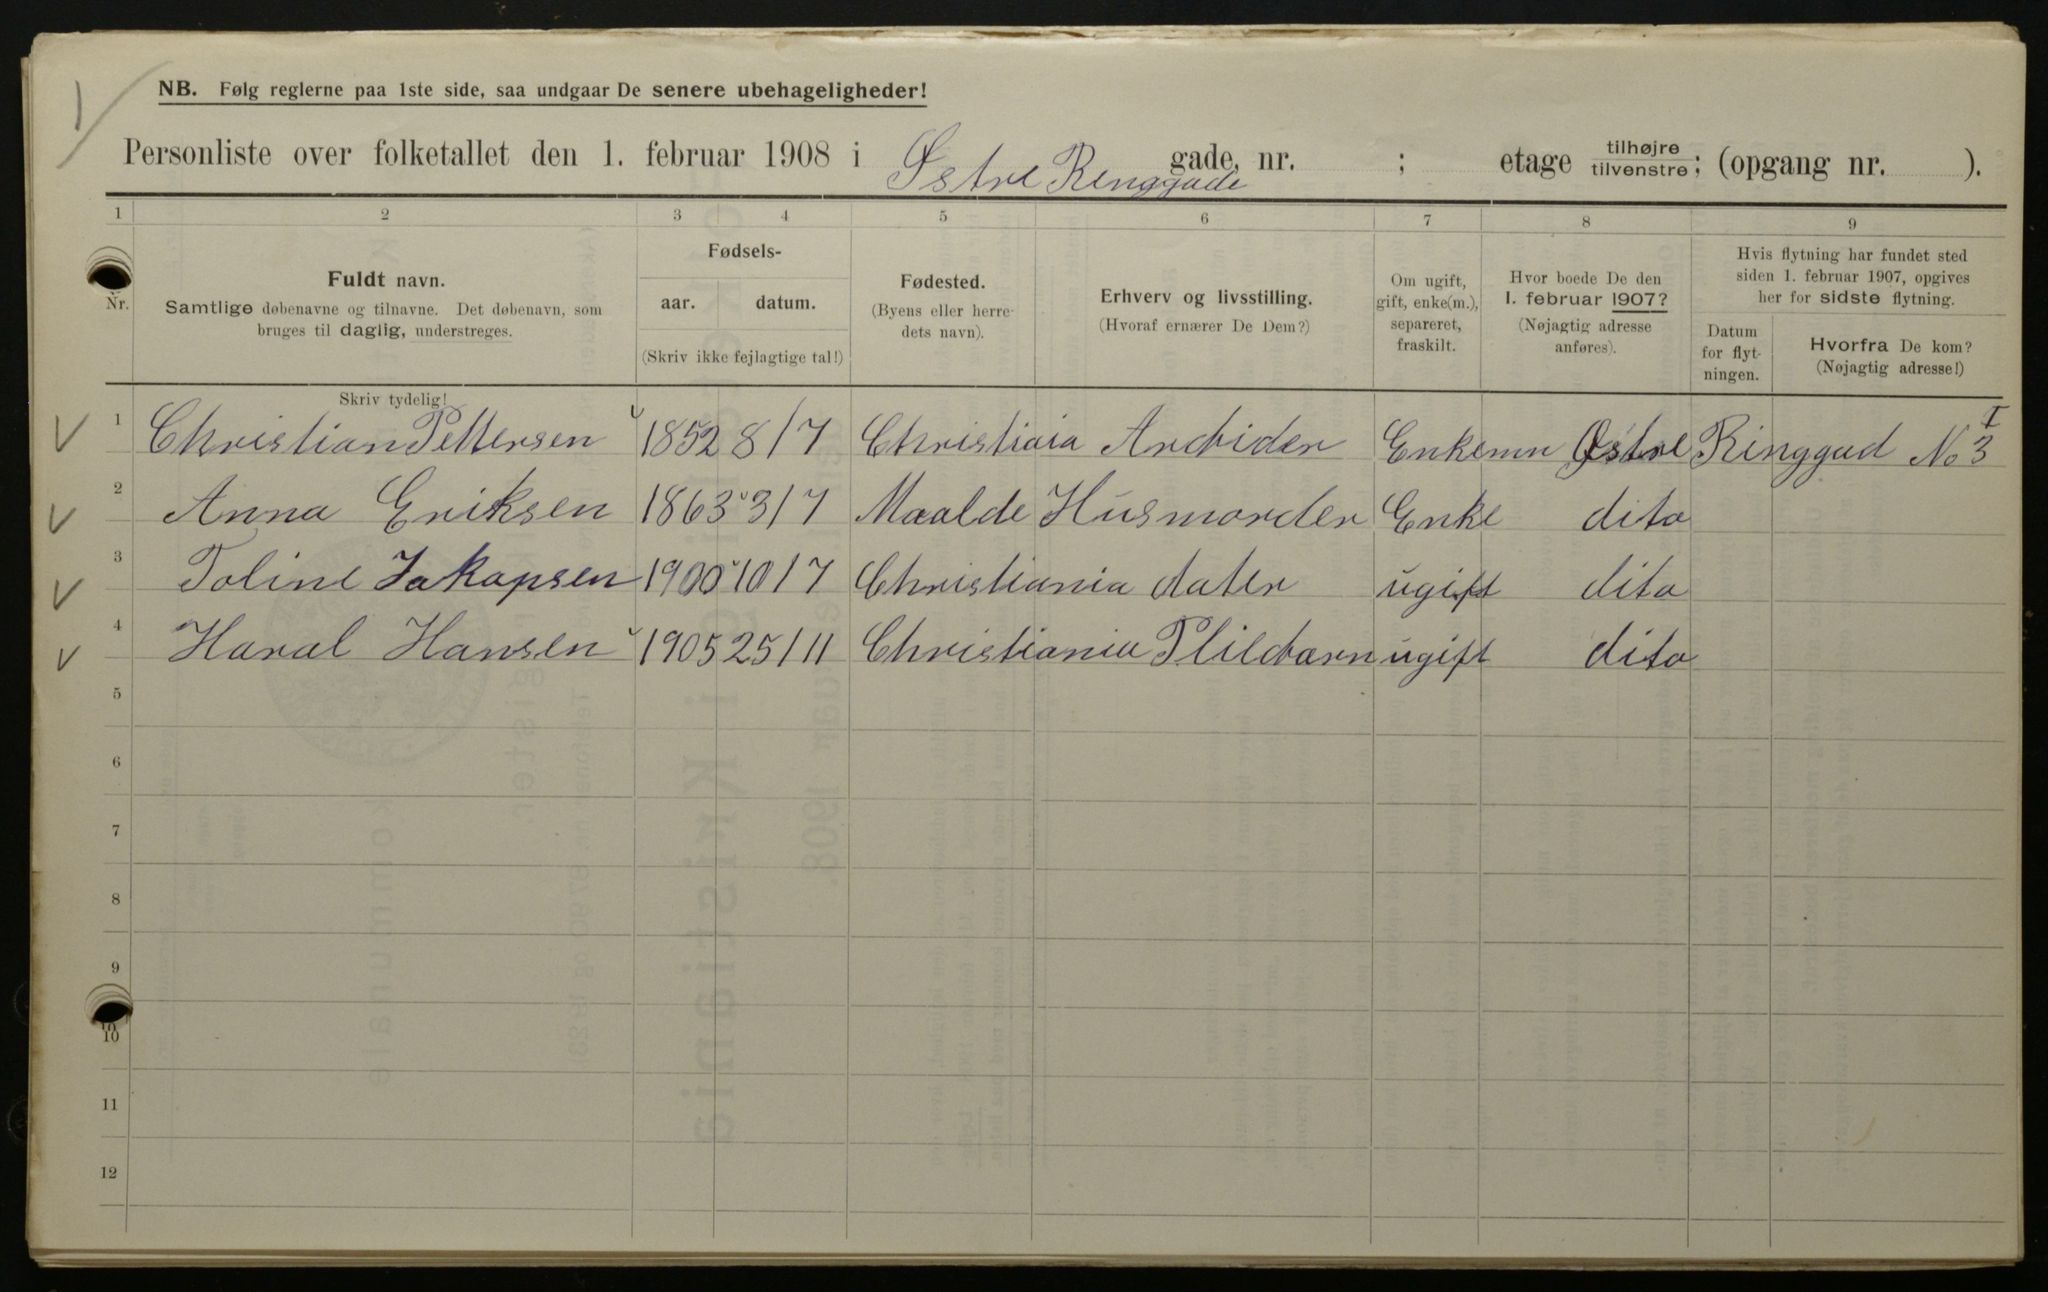 NB. Følg reglerne paa 1ste side, saa undgaar De senere ubehageligheder!
Personliste over folketallet den 1. februar 1908 i Østre Renggade gade, nr. ; etage tilhøjre tilvenstre; (opgang nr. ).
1 2 3 4 5 6 7 8 9
Nr.
Fuldt navn.
Samtlige døbenavne og tilnavne. Det døbenavn, som
bruges til daglig, understreges.
Fødsels-
aar. datum.
(Skriv ikke fejlagtige tal!)
Fødested.
(Byens eller herre-
dets navn).
Erhverv og livsstilling.
(Hvoraf ernærer De Dem?)
Om ugift,
gift, enke(m.),
separeret,
fraskilt.
Hvor boede De den
1. februar 1907?
(Nøjagtig adresse
anføres).
Hvis flytning har fundet sted
siden 1. februar 1907, opgives
her for sidste flytning.
Datum
for flyt-
ningen.
Hvorfra De kom?
(Nøjagtig adresse!)
Skriv tydelig!
1 Christian Pettersen 1852 8/7 Christiaia Arbider Enkemn Østre Ringgad No 3 I
2 Anna Eriksen 1863 3/7 Maalde Husmorder Enke dito
3 Toline Jakopsen 1900 10/7 Christiania dater ugift dito
4 Haral Hansen 1905 25/11 Christiania Plilebarn ugift dito
5
6
7
8
9
10
11
12